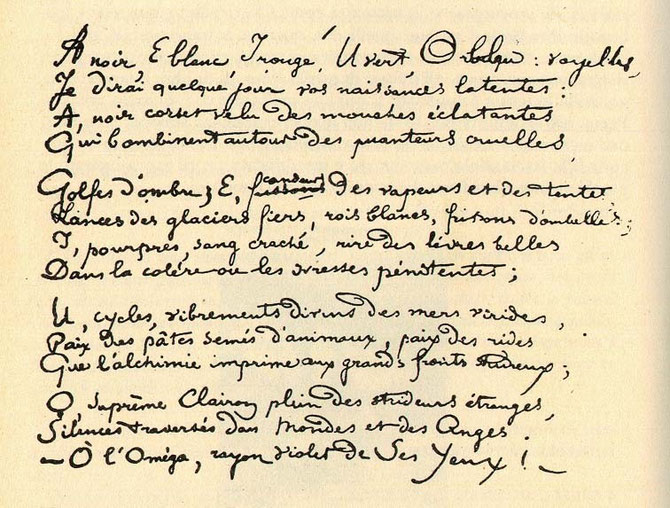 A noir E blanc I rouge, U vert O bleu : voyelles,
Je dirai quelque jour vos naissances latentes :
A, noir corset velu des mouches éclatantes
Qui bombinent autour des puanteurs cruelles,
Golfes d'ombre ; E, frissons candeurs des vapeurs et des tentes
Lances des glaciers fiers, rois blancs, frissons d'ombelles ;
I, pourpres, sang craché, rire des lèvres belles
Dans la colère ou les ivresses pénitentes ;
U, cycles, vibrements divins des mers virides,
Paix des pâtis semés d'animaux, paix des rides
Que l'alchimie imprime aux grands fronts studieux ;
O, Suprême Clairon plein des strideurs étranges,
Silences traversés des Mondes et des Anges :
– Ô l'Oméga, rayon violet de Ses Yeux ! –